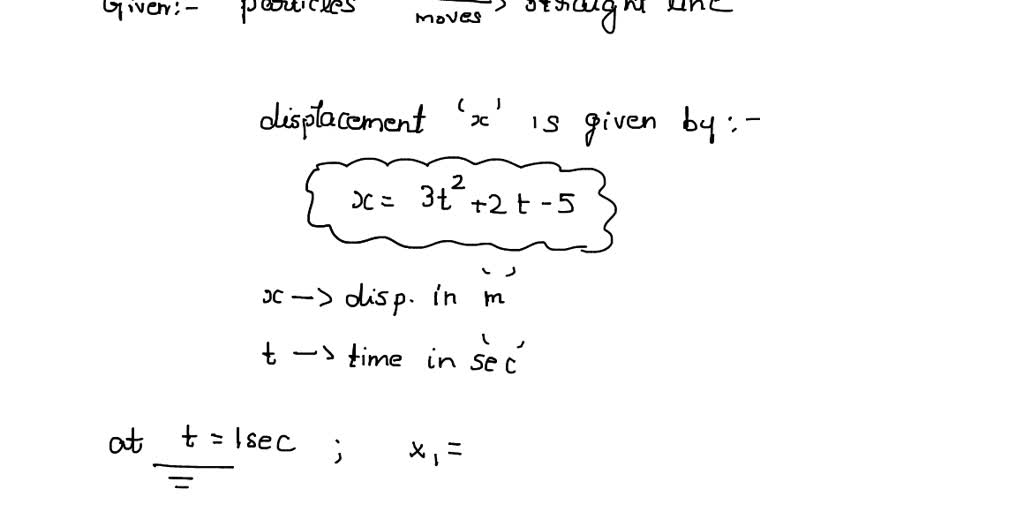 Given:- particles moves -> straight line
displacement 'x' is given by :-
x = 3t² + 2t - 5
x -> disp. in 'm'
t -> time in 'sec'
at t = 1sec ; x₁ =